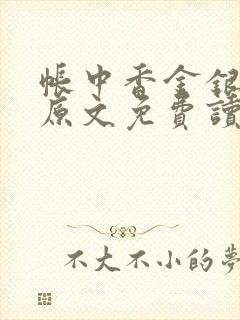 帳中香金銀
原文免費讀
不大不小的夢